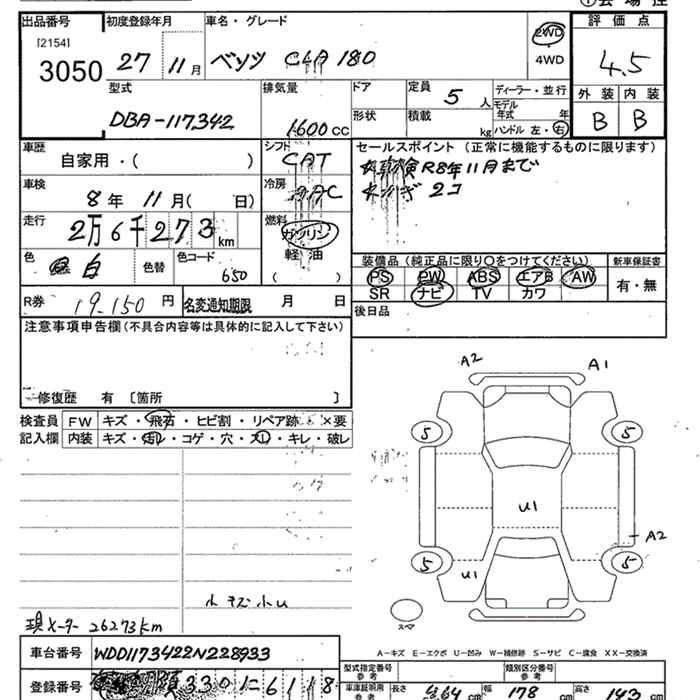 出品番号 初度登録年月 車名・グレード 評価点
[2154]
3050 27 11月 ベンツ CLA 180 2WD 4.5
4WD
型式 排気量 ドア 定員 5人 ディーラー・並行 外装 内装
モデル年式 年
DBA-117342 1600cc 形状 積載 kg ハンドル 左・右 B B
車歴 シフト セールスポイント (正常に機能するものに限ります)
自家用・( ) CAT 車検R8年11月まで
車検 冷房 2コ
8年 11月( 日) AAC
走行 燃料
2万6千273km ガソリン
軽油
( )
色 白 色替 色コード 650
装備品 (純正品に限り○をつけてください) 新車保証書
PS PW ABS エアB AW 有・無
SR ナビ TV カワ
R券 19.150円 名変通知期限 月 日 後日品
注意事項申告欄(不具合内容等は具体的に記入して下さい)
修復歴 有 [箇所 ]
検査員 FW キズ・飛石・ヒビ割・リペア跡・×要
記入欄 内装 キズ・汚レ・コゲ・穴・スレ・キレ・破レ
A2 A1
5 5
U1
A2
5 U1 5
小キズ小U
現メーター 26273km
スペア
A-キズ E-エクボ U-凹み W-補修跡 S-サビ C-腐食 XX-交換済
車台番号 WDD1173422N228933
型式指定番号 参考 類別区分番号 参考
登録番号 330 に 6118
車庫証明用 参考 長さ 464cm 幅 178cm 高さ 143cm